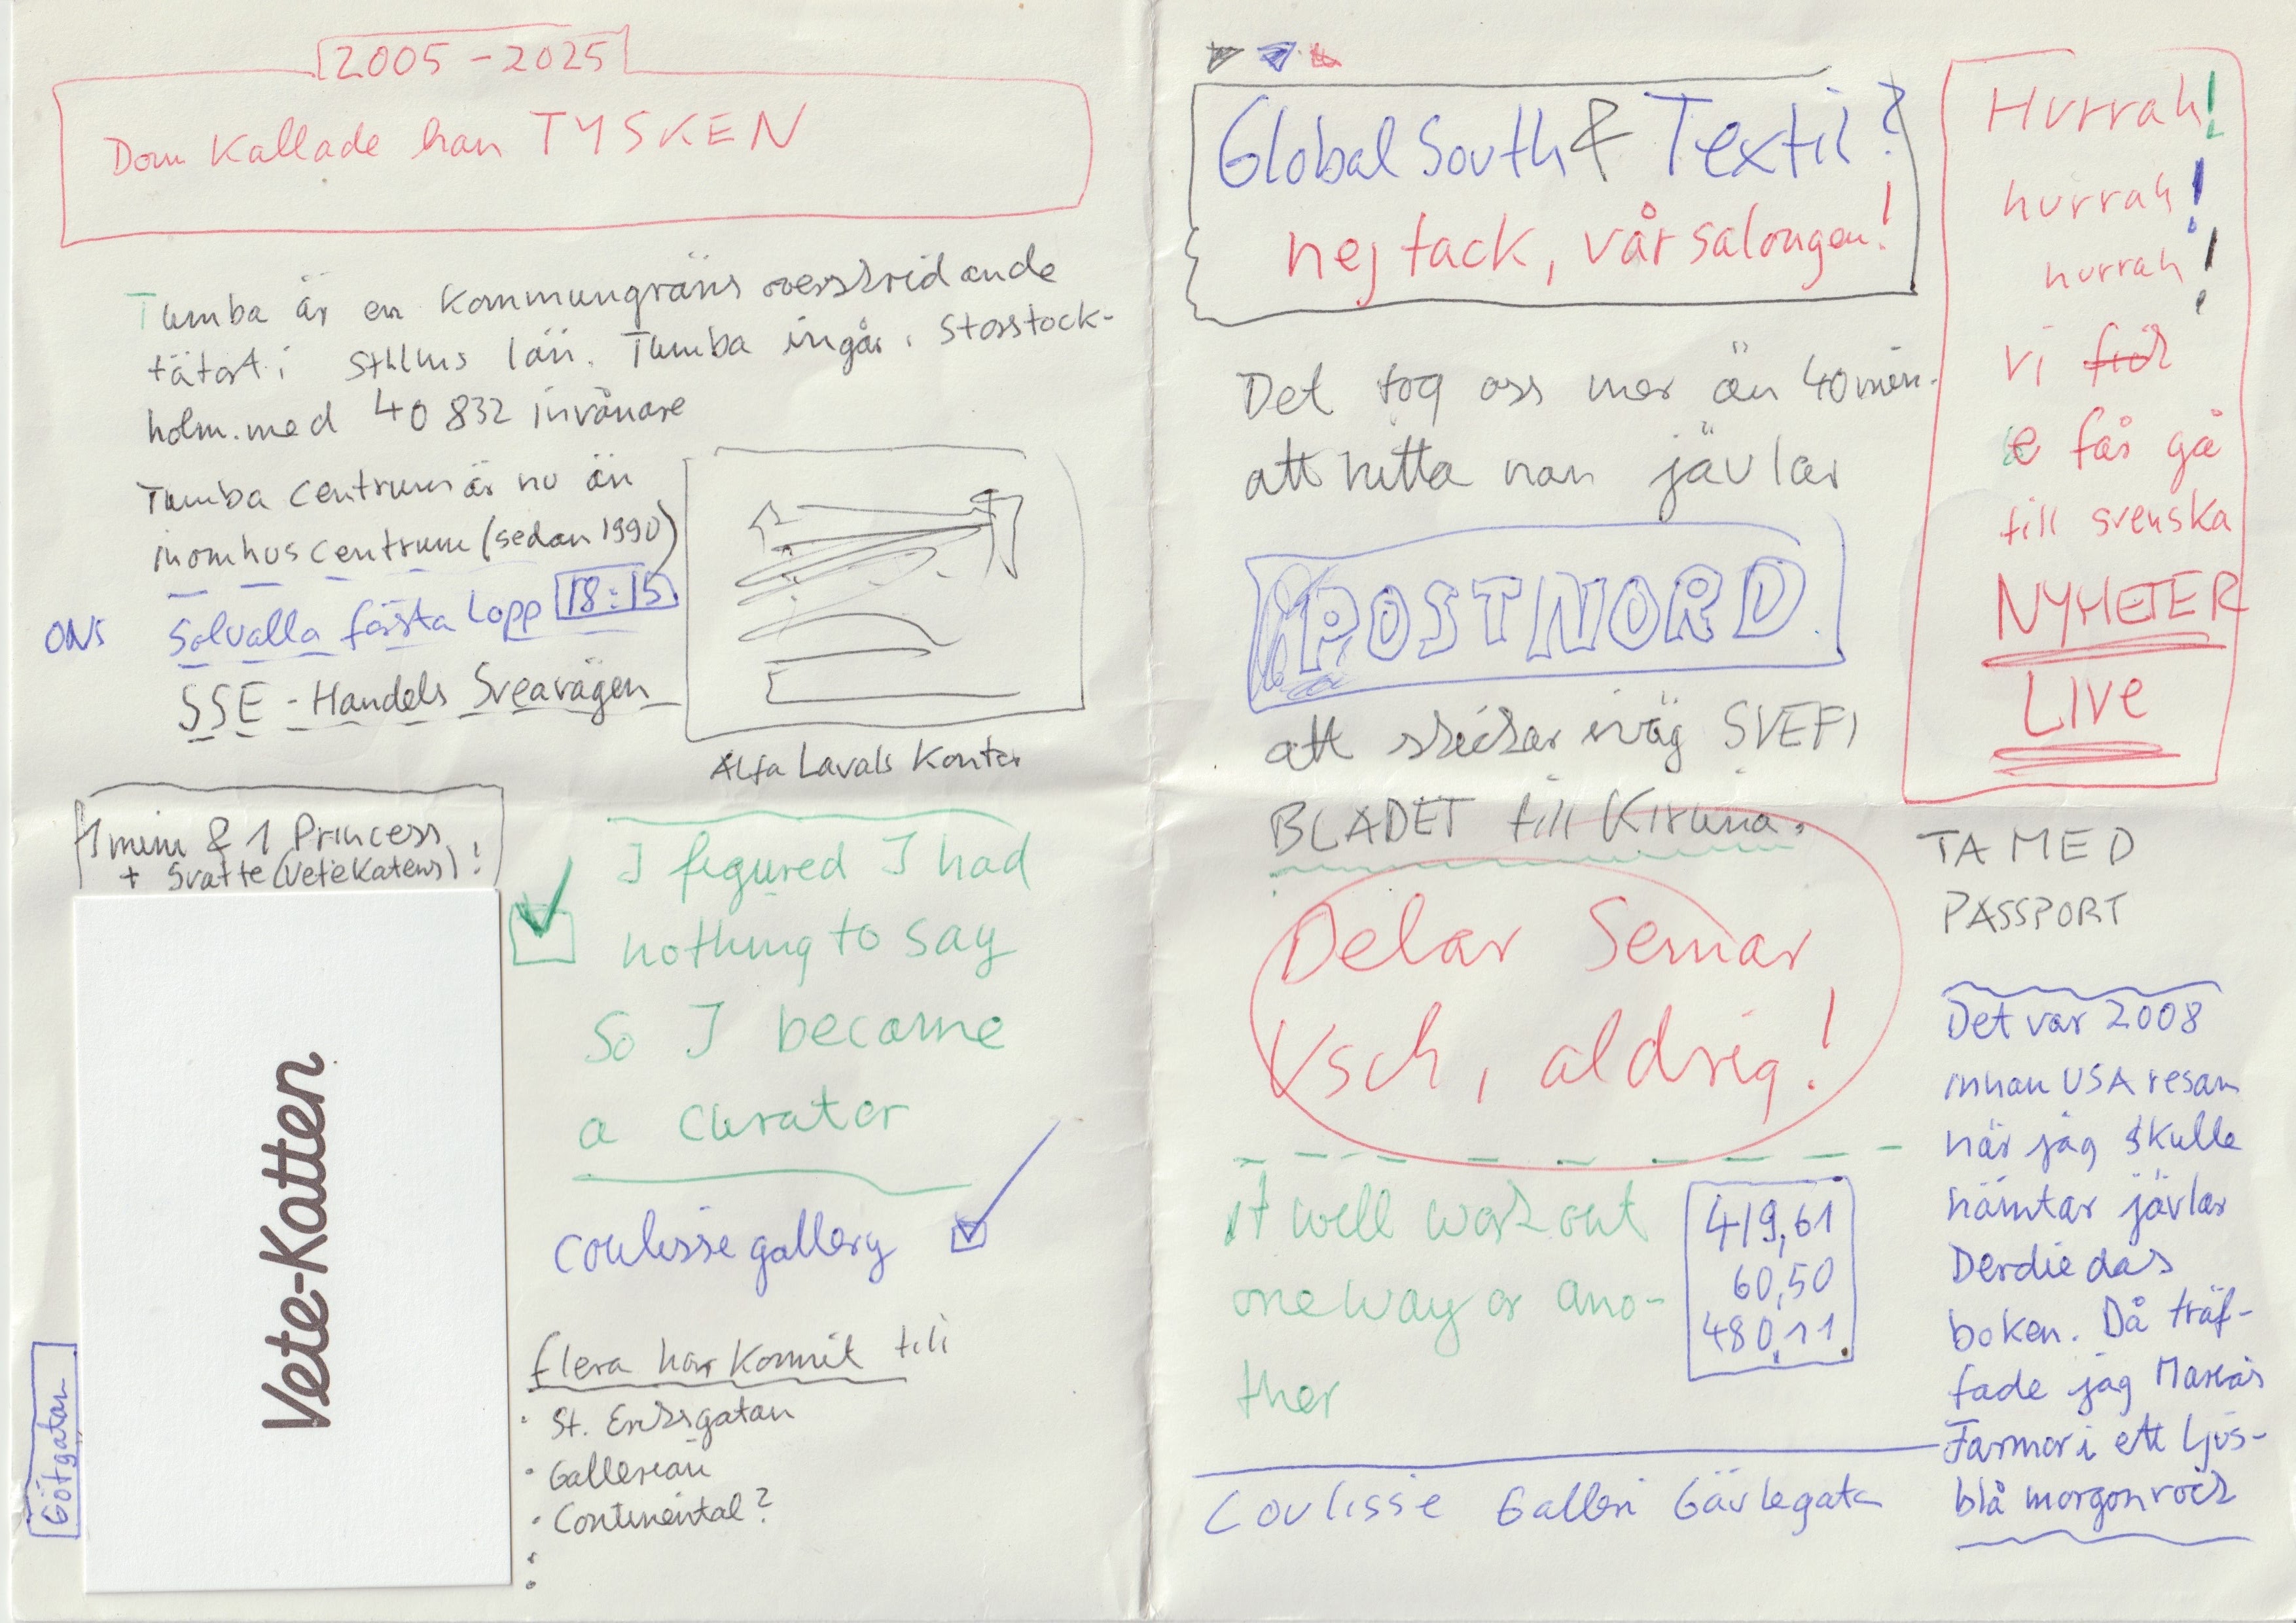 2005 - 2025
Dom Kallade han TYSKEN
Tumba är en kommungräns överskridande
tätort i Sthlms län. Tumba ingår i Storstock-
holm. med 40 832 invånare
Tumba centrum är nu än
inomhuscentrum (sedan 1990)
ONS Solvalla första Lopp 18:15
SSE - Handels Sveavägen
Alfa Lavals Kontor
1 mini & 1 Princess
+ Svarte (Vetekatens)!
Vete-Katten
Götgatan
I figured I had
nothing to say
So I became
a curator
Coulisse gallery
flera har kommit till
· St. Eriksgatan
· Gallerian
· Continental?
Global South & Textil?
nej tack, vårsalongen!
Det tog oss mer än 40 min.
att hitta nån jävlar
POSTNORD
att skickar iväg SVEFI
BLADET till Kiruna.
Delar Semar
Usch, aldrig!
it well work out
one way or ano-
ther
419,61
60,50
480,11.
Coulisse Galleri Gävlegata
Hurrah!
hurrah!
hurrah!
vi
e får gå
till svenska
NYHETER
LIVE
TA MED
PASSPORT
Det var 2008
innan USA resan
när jag skulle
hämtar jävlar
Derdiedas
boken. Då träf-
fade jag Marias
Farmor i ett ljus-
blå morgonrock